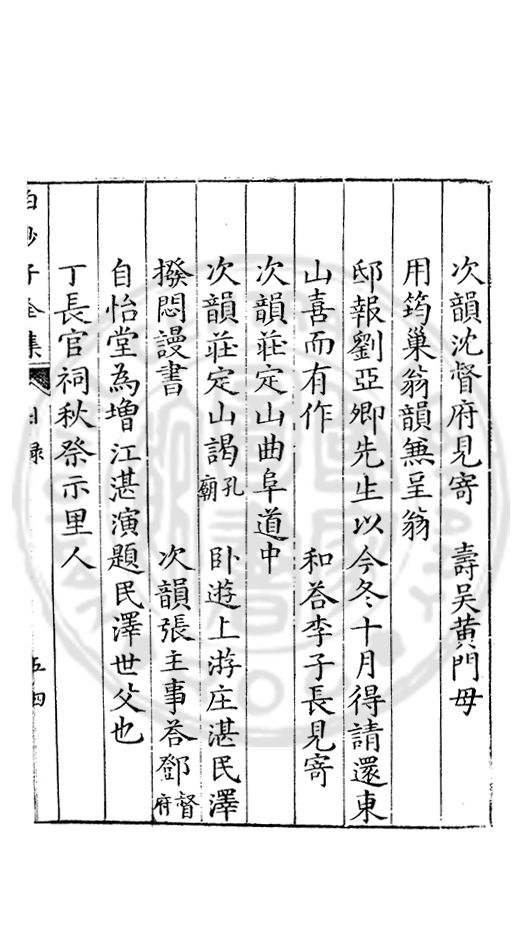 次韻沈督府見寄　壽吴黄門母
用筠巢翁韻兼呈翁
邸報劉亞卿先生以今冬十月得請還東
山喜而有作　和荅李子長見寄
次韻莊定山曲阜道中
次韻莊定山謁孔廟　卧遊上游庄湛民澤
撥悶謾書　次韻張主事荅鄧督府
自怡堂為增江湛演題民澤世父也
丁長官祠秋祭示里人
白沙子全集　目録　五四